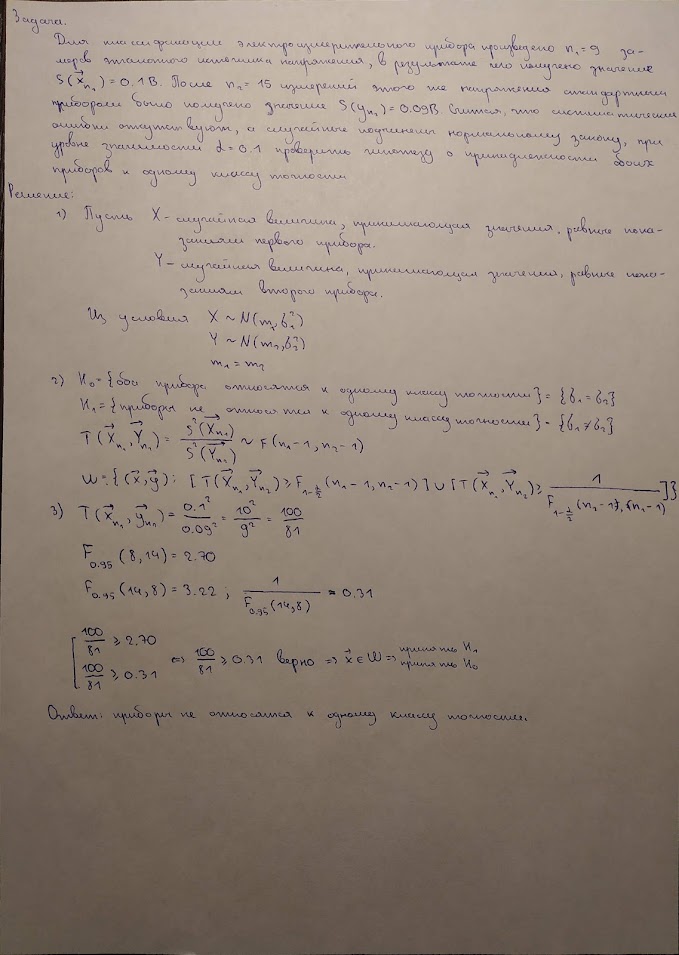 Задача.
Для классификации электроизмерительного прибора произведено n₁ = 9 за-
меров эталонного источника напряжения, в результате чего получено значение
S(x⃗ₙ₁) = 0.1 В. После n₂ = 15 измерений этого же напряжения стандартным
прибором было получено значение S(yₙ₂) = 0.09 В. Считая, что систематические
ошибки отсутствуют, а случайные подчинены нормальному закону, при
уровне значимости α = 0.1 проверить гипотезу о принадлежности обоих
приборов к одному классу точности
Решение:
1) Пусть X – случайная величина, принимающая значения, равные пока-
заниям первого прибора.
Y – случайная величина, принимающая значения, равные пока-
заниям второго прибора.
Из условия X ~ N(m₁, σ₁²)
Y ~ N(m₂, σ₂²)
m₁ = m₂
2) H₀ = {оба прибора относятся к одному классу точности} = {σ₁ = σ₂}
H₁ = {приборы не относятся к одному классу точности} = {σ₁ ≠ σ₂}
T(X⃗ₙ₁, Y⃗ₙ₂) = S²(X⃗ₙ₁) / S²(Y⃗ₙ₂) ~ F(n₁-1, n₂-1)
W = {(x⃗, y⃗): [T(X⃗ₙ₁, Y⃗ₙ₂) ⩾ F₁₋α/₂ (n₁-1, n₂-1)] ∪ [T(X⃗ₙ₁, Y⃗ₙ₂) ⩾ 1 / F₁₋α/₂ (n₂-1, n₁-1)]}
3) T(x⃗ₙ₁, y⃗ₙ₂) = 0.1² / 0.09² = 10² / 9² = 100 / 81
F₀.₉₅ (8,14) = 2.70
F₀.₉₅ (14,8) = 3.22 ; 1 / F₀.₉₅ (14,8) = 0.31
[ 100/81 ⩾ 2.70
100/81 ⩾ 0.31 ⇔ 100/81 ⩾ 0.31 верно ⇒ x⃗ ∈ W ⇒ принять H₁
принять H₀
Ответ: приборы не относятся к одному классу точности.